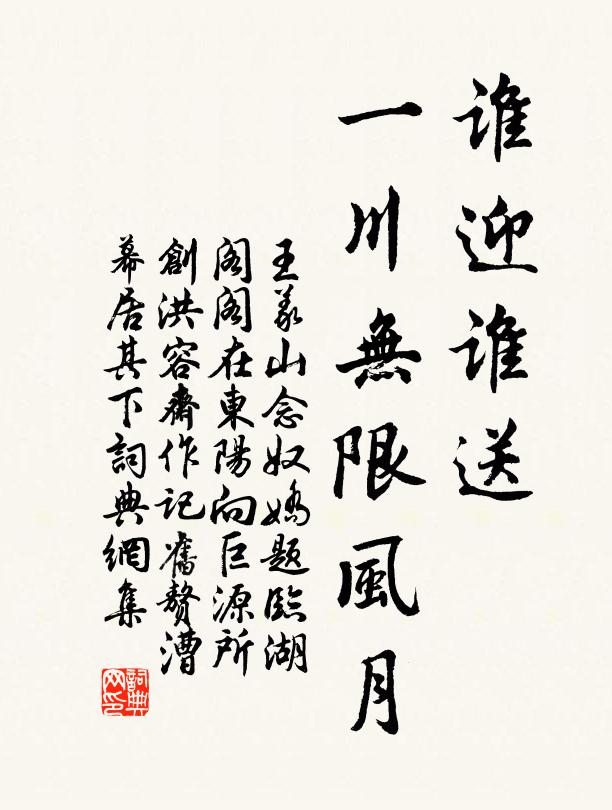 誰迎誰送
一川無限風月
王義山念奴嬌題臨湖
閣閣在東陽向巨源所
創洪容齋作記舊贅漕
幕居其下詞典網集
詞典
网印